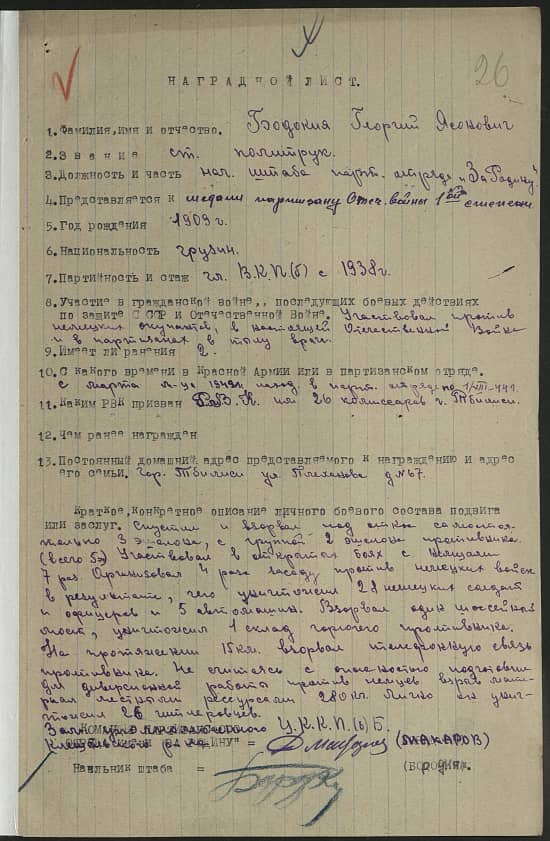 26
НАГРАДНОЙ ЛИСТ.
1. Фамилия, имя и отчество. Бодокия Георгий Ясонович
2. Звание ст. политрук.
3. Должность и часть нач. штаба парт. отряда "За Родину"
4. Представляется к медали партизану Отеч. войны 1ой степени
5. Год рождения 1909 г.
6. Национальность грузин.
7. Партийность и стаж чл. В.К.П(б) с 1938г.
8. Участие в гражданской войне,, последующих боевых действиях
по защите СССР и Отечественной войне. Участвовал против
немецких окупантов, в настоящей Отечественной Войне
и в партизанах в тылу врага.
9. Имеет ли ранения 2.
10. С какого времени в Красной Армии или в партизанском отряде.
С марта м-ца 1942г. в парт. отряде по
11. Каким РВК призван Р.В.К. им 26 комиссаров г. Тбилиси.
12. Чем ранее награжден
13. Постоянный домашний адрес представляемого к награждению и адрес
его семьи. Гор. Тбилиси ул. Плеханова д №67.
Краткое, конкретное описание личного боевого состава подвига
или заслуг. Спустил и взорвал под откос самостоя-
тельно 3 эшелона, с группой 2 эшелона противника.
(всего 5э) Участвовал в открытых боях с немцами
7 раз. Организовал 4 раза засаду против немецких войск
в результате, чего уничтожил 28 немецких солдат
и офицеров и 5 автомашин. Взорвал один шоссейный
мост, уничтожил 1 склад горючего противника.
На протяжении 15 кл. взорвал телефонную связь
противника. Не считаясь с опасностью подготовил
для диверсионной работы против немцев взрыв мате-
риал местными ресурсами 280 кл. Лично он унич-
тожил 26 гитлеровцев.
Ц.К.К.П.(б)Б.
РОДИНУ" = (МАКАРОВ)
Начальник штаба =